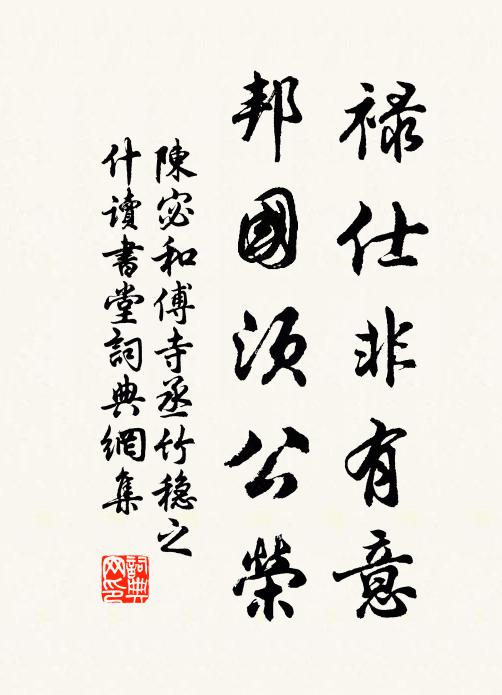 祿仕非有意
邦國須公榮
陳宓和傅寺丞竹穩之
什讀書堂詞典網集
詞典
网印